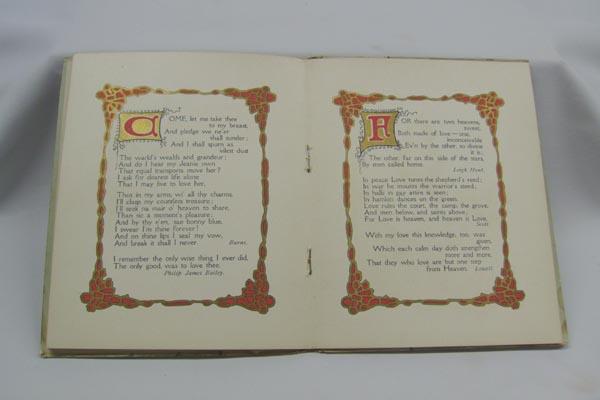 COME, let me take thee
to my breast,
And pledge we ne'er
shall sunder;
And I shall spurn as
vilest dust
The world's wealth and grandeur:
And do I hear my Jeanie own
That equal transports move her?
I ask for dearest life alone
That I may live to love her.
Thus in my arms, wi' all thy charms,
I'll clasp my countless treasure;
I'll seek nae mair o' heaven to share,
Than sic a moment's pleasure;
And by thy e'en, sae bonny blue,
I swear I'm thine forever!
And on thine lips I seal my vow,
And break it shall I never Burns.
I remember the only wise thing I ever did,
The only good, was to love thee.
Philip James Bailey.
FOR there are two heavens,
sweet,
Both made of love—one,
inconceivable
Ev'n by the other, so divine
it is;
The other, far on this side of the stars,
By men called home.
Leigh Hunt.
In peace Love tunes the shepherd's reed;
In war he mounts the warrior's steed;
In halls in gay attire is seen;
In hamlets dances on the green.
Love rules the court, the camp, the grove,
And men below, and saints above;
For Love is heaven, and heaven is Love.
Scott
With my love this knowledge, too, was
given,
Which each calm day doth strengthen
more and more,
That they who love are but one step
from Heaven. Lowell